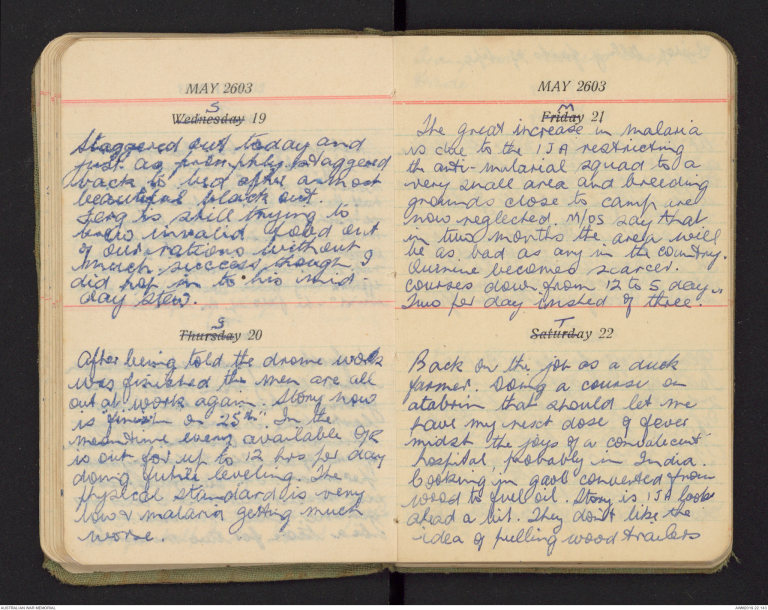 MAY 2603
S
Wednesday 19
Staggered out today and
just as promptly staggered
back to bed after a most
beautiful black out.
Ferg is still trying to
brew invalid food out
of our rations without
much success, though I
did hop in to his mid
day stew.
S
Thursday 20
After being told the drome work
was finished the men are all
out at work again. Story now
is "finish on 25th". In the
meantime every available OR
is out for up to 12 hrs per day
doing futile leveling. The
physical standard is very
low & malaria getting much
worse.
MAY 2603
M
Friday 21
The great increase in malaria
is due to the IJA restricting
the anti-malarial squad to a
very small area and breeding
grounds close to camp are
now neglected. M/Os say that
in two months the area will
be as bad as any in the country.
Quinine becomes scarcer.
Courses down from 12 to 5 days
Two per day instead of three.
T
Saturday 22
Back on the job as a duck
farmer. Doing a course on
atabrin that should let me
have my next dose of fever
midst the joys of a convalescent
hospital, probably in India.
Cooking in gaol converted from
wood to fuel oil. Story is IJA looks
ahead a bit. They don't like the
idea of pulling wood trailers
AUSTRALIAN WAR MEMORIAL